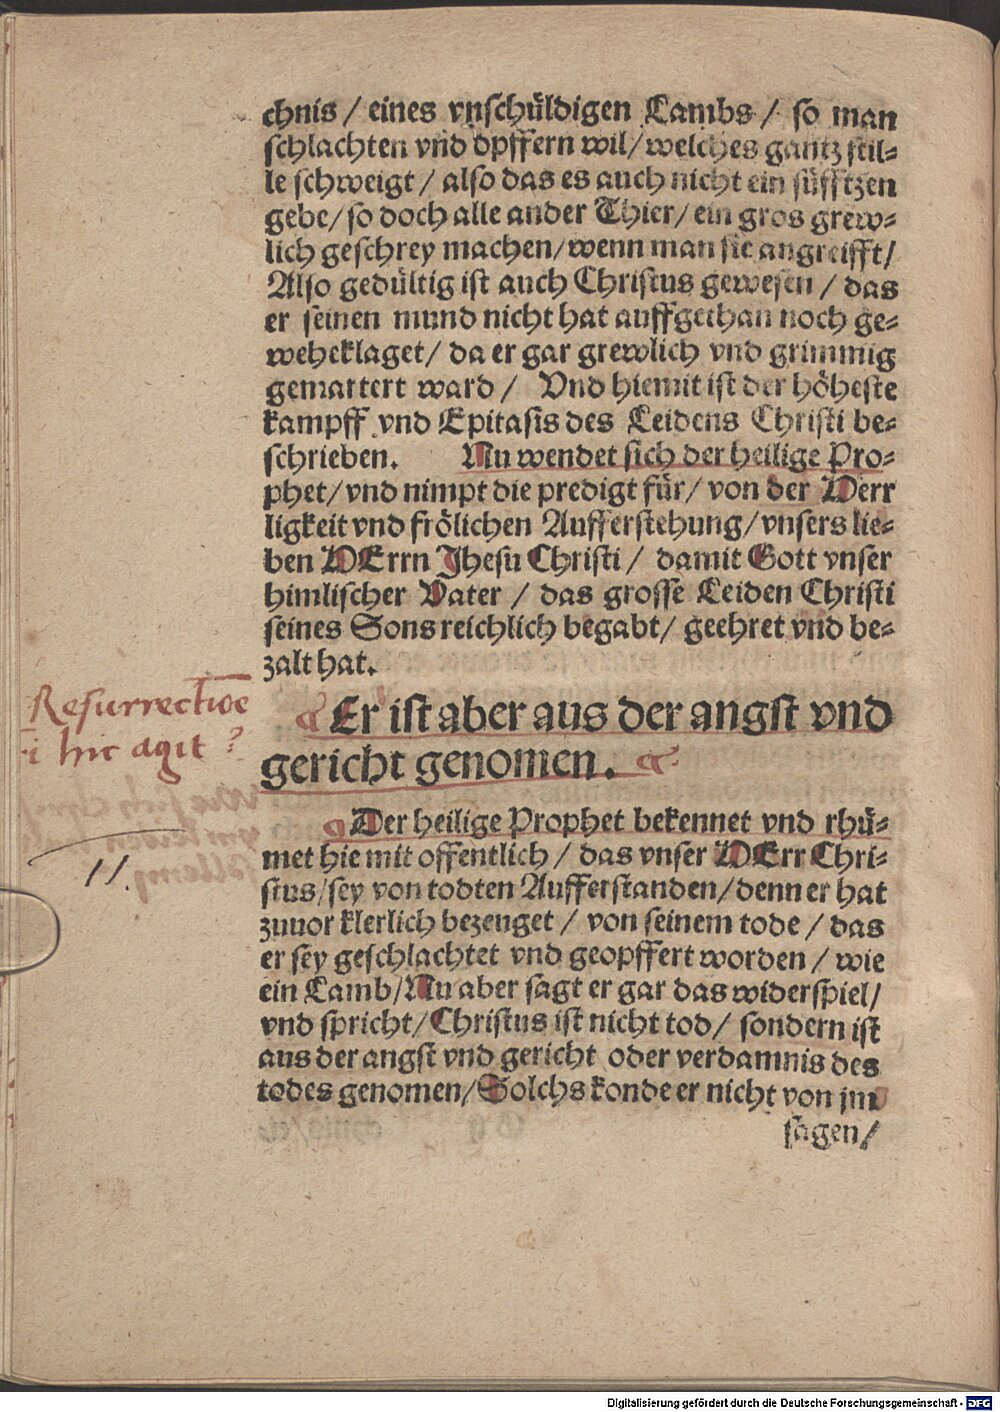 chnis / eines vnschüldigen Lambs / so man
schlachten vnd opffern wil / welches gantz stil-
le schweigt / also das es auch nicht ein süfftzen
gebe / so doch alle ander Thier / ein gros grew-
lich geschrey machen / wenn man sie angreifft /
Also gedültig ist auch Christus gewesen / das
er seinen mund nicht hat auffgethan noch ge-
weheklaget / da er gar grewlich vnd grimmig
gemartert ward / Vnd hiemit ist der höheste
kampff vnd Epitasis des Leidens Christi be-
schrieben. Nu wendet sich der heilige Pro-
phet / vnd nimpt die predigt für / von der Herr
ligkeit vnd frölichen Aufferstehung / vnsers lie-
ben HErrn Jhesu Christi / damit Gott vnser
himlischer Vater / das grosse Leiden Christi
seines Sons reichlich begabt / geehret vnd be-
zalt hat.
Resurrectioe
hic agit
Er ist aber aus der angst vnd
gericht genomen.
11.
Der heilige Prophet bekennet vnd rhü-
met hie mit offentlich / das vnser HErr Chri-
stus / sey von todten Aufferstanden / denn er hat
zuuor klerlich bezeuget / von seinem tode / das
er sey geschlachtet vnd geopffert worden / wie
ein Lamb / Nu aber sagt er gar das widerspiel /
vnd spricht / Christus ist nicht tod / sondern ist
aus der angst vnd gericht oder verdamnis des
todes genomen / Solchs konde er nicht von jm
sagen /
Digitalisierung gefördert durch die Deutsche Forschungsgemeinschaft - DFG